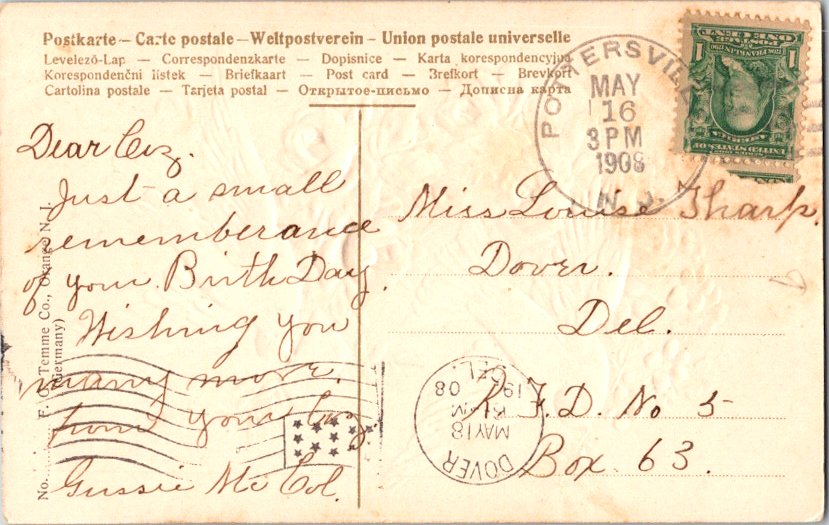 Postkarte – Carte postale – Weltpostverein – Union postale universelle
Levelező-Lap — Correspondenzkarte — Dopisnice — Karta korespondencyjna
Korespondenční lístek — Briefkaart — Post card — Brefkort — Brevkort
Cartolina postale — Tarjeta postal — Открытое-письмо — Дописна карта
POTTERSVILLE
MAY
16
3 PM
1908
N. J.
1 POSTAGE 1
ONE CENT
UNITED STATES OF
AMERICA
Dear Coz.
Just a small
rememberance
of your Birth Day.
Wishing you
many more.
from your Coz.
Gussie Mc Col.
Miss Louise Tharp.
Dover.
Del.
R. F. D. No 5
Box 63.
DOVER
MAY 18
PM
1908
DEL.
No.
Temme Co., Orange N. J.
Germany)